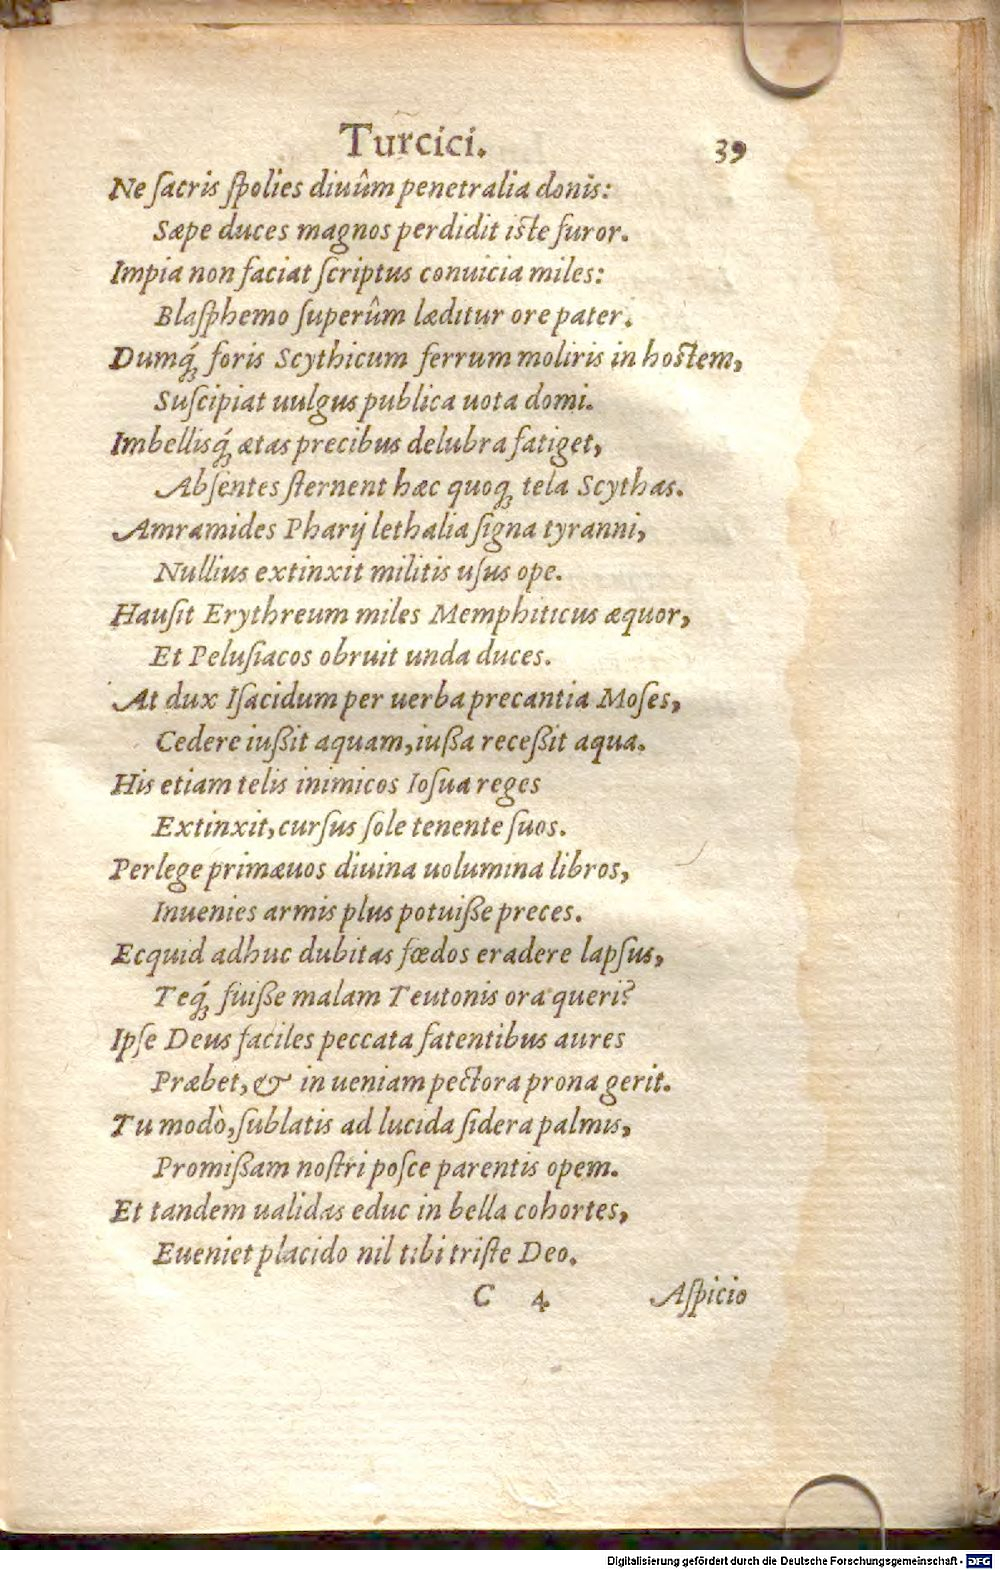 Turcici. 39
Ne ſacris ſpolies diuûm penetralia donis:
Sæpe duces magnos perdidit iſte furor.
Impia non faciat ſcriptus conuicia miles:
Blaſphemo ſuperûm læditur ore pater.
Dumq́; foris Scythicum ferrum moliris in hoſtem,
Suſcipiat uulgus publica uota domi.
Imbellisq́; ætas precibus delubra fatiget,
Abſentes ſternent hæc quoq; tela Scythas.
Amramides Pharij lethalia ſigna tyranni,
Nullius extinxit militis uſus ope.
Hauſit Erythreum miles Memphiticus æquor,
Et Peluſiacos obruit unda duces.
At dux Iſacidum per uerba precantia Moſes,
Cedere iußit aquam, iußa receßit aqua.
His etiam telis inimicos Ioſua reges
Extinxit, curſus ſole tenente ſuos.
Perlege primæuos diuina uolumina libros,
Inuenies armis plus potuiße preces.
Ecquid adhuc dubitas fœdos eradere lapſus,
Teq́; fuiße malam Teutonis ora queri?
Ipſe Deus faciles peccata fatentibus aures
Præbet, & in ueniam pectora prona gerit.
Tu modò, ſublatis ad lucida ſidera palmis,
Promißam noſtri poſce parentis opem.
Et tandem ualidas educ in bella cohortes,
Eueniet placido nil tibi triſte Deo.
C 4 Aſpicio
Digitalisierung gefördert durch die Deutsche Forschungsgemeinschaft - DFG